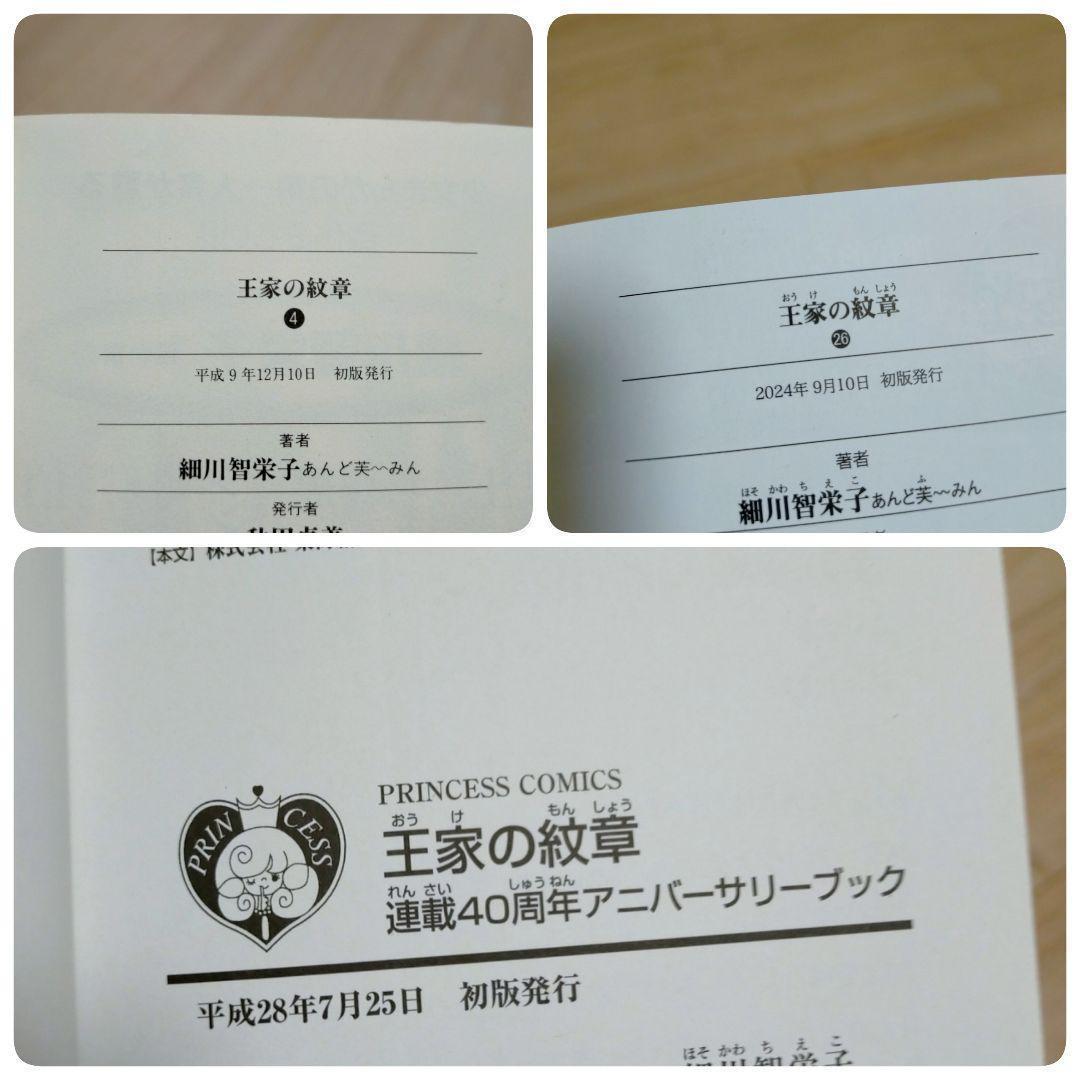 王家の紋章
4
平成9年12月10日 初版発行
著者
細川智栄子あんど芙〜みん
発行者
おう け もん しょう
王家の紋章
26
2024年9月10日 初版発行
著者
ほそ かわ ち え こ ふ
細川智栄子あんど芙〜みん
【本文】株式会社
PRINCESS
PRINCESS COMICS
おう け もん しょう
王家の紋章
れん さい しゅう ねん
連載40周年アニバーサリーブック
平成28年7月25日 初版発行
ほそ かわ ち え こ
細川智栄子